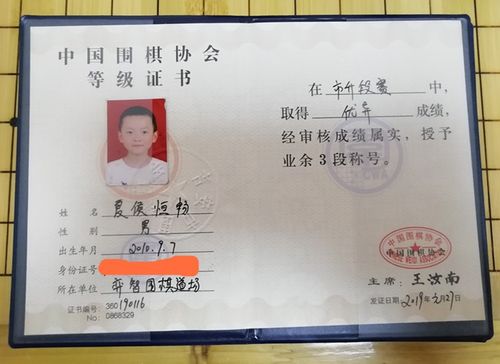 中国围棋协会
等级证书
姓名 夏侯恒畅
性别 男
出生年月 2010.9.7
身份证号
所在单位 弈智围棋道场
证书编号:360190116
No:0868329
在市升段赛中,
取得优异成绩,
经审核成绩属实,授予
业余3段称号。
中国围棋协会
CHINESE WEIQI ASSOCIATION
中国围棋协会
主席:王汝南
发证日期:2019年2月27日
CWA